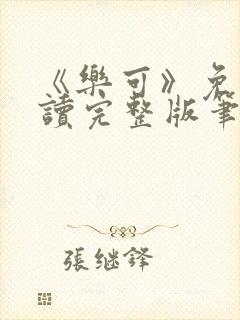 《樂可》免
讀完整版筆
張继鋒